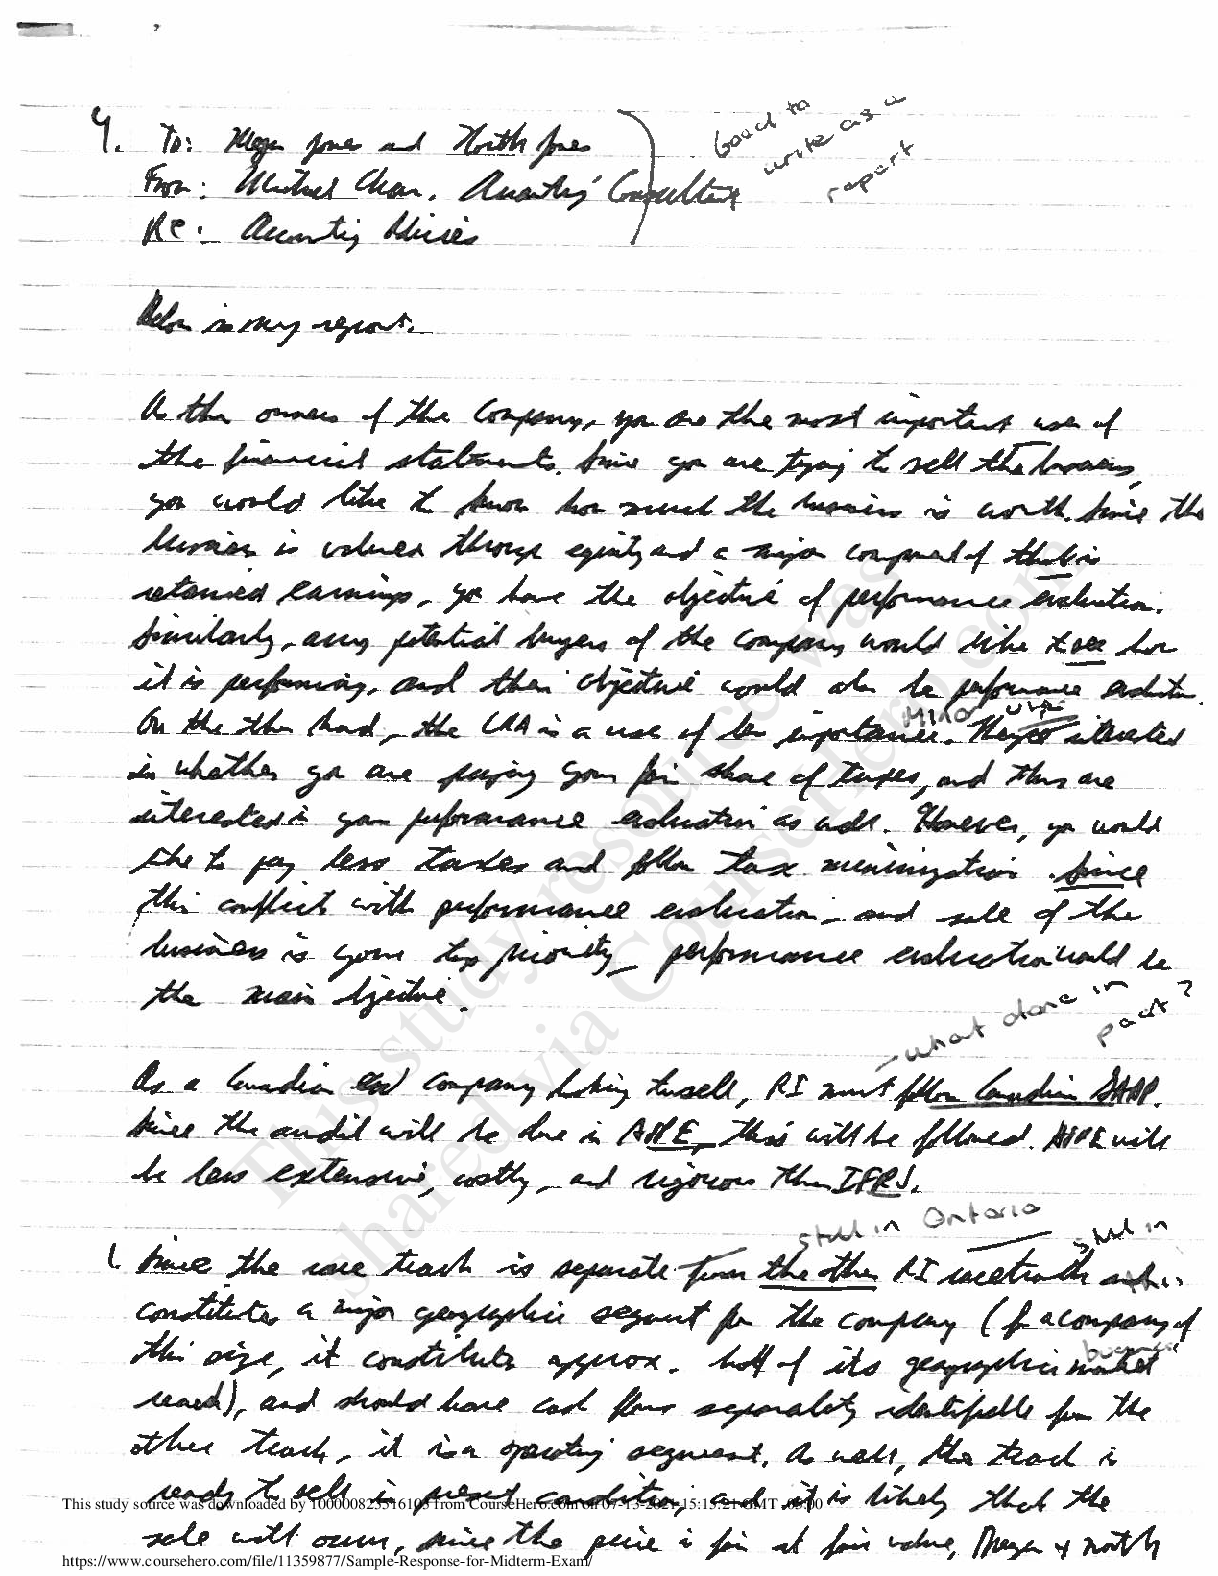 4. To: Megan Jones and North Jones
From: Michael Chan, Accounting Consultant
Re: Accounting Policies
Good to
write as a
report
Below is my report.
As the owners of the Company, you are the most important user of
the financial statements. Since you are trying to sell the business,
you would like to know how much the business is worth. Since the
business is valued through equity and a major component of that is
retained earnings, you have the objective of performance evaluation.
Similarly, any potential buyers of the company would like to see how
it is performing, and their objective would also be performance evaluation.
On the other hand, the CRA is a user of less importance. They're interested
Minor user
in whether you are paying your fair share of taxes, and thus are
interested in your performance evaluation as well. However, you would
like to pay less taxes and follow tax minimization. Since
this conflicts with performance evaluation, and sale of the
business is your top priority, performance evaluation would be
the main objective.
- what done in
past?
As a Canadian company looking to sell, RI must follow Canadian GAAP.
Since the audit will be done in ASPE, this will be followed. ASPE will
be less extensive, costly, and rigorous than IFRS.
still in Ontario
still in
business
1. Since the race track is separate from the other RI racetrack and
constitutes a major geographic segment for the company (for a company of
this size, it constitutes approx. half of its geographic market
), and should have cash flows separately identifiable from the
other track, it is a operating segment. As well, the track is
ready to sell in present condition, and it is likely that the
sale will occur, since the price is fair at fair value, Megan & North
This study source was downloaded by 100000823516103 from CourseHero.com on 07-13-2021 15:15:21 GMT -05:00
https://www.coursehero.com/file/11359877/Sample-Response-for-Midterm-Exam/
This study resource was
shared via CourseHero.com